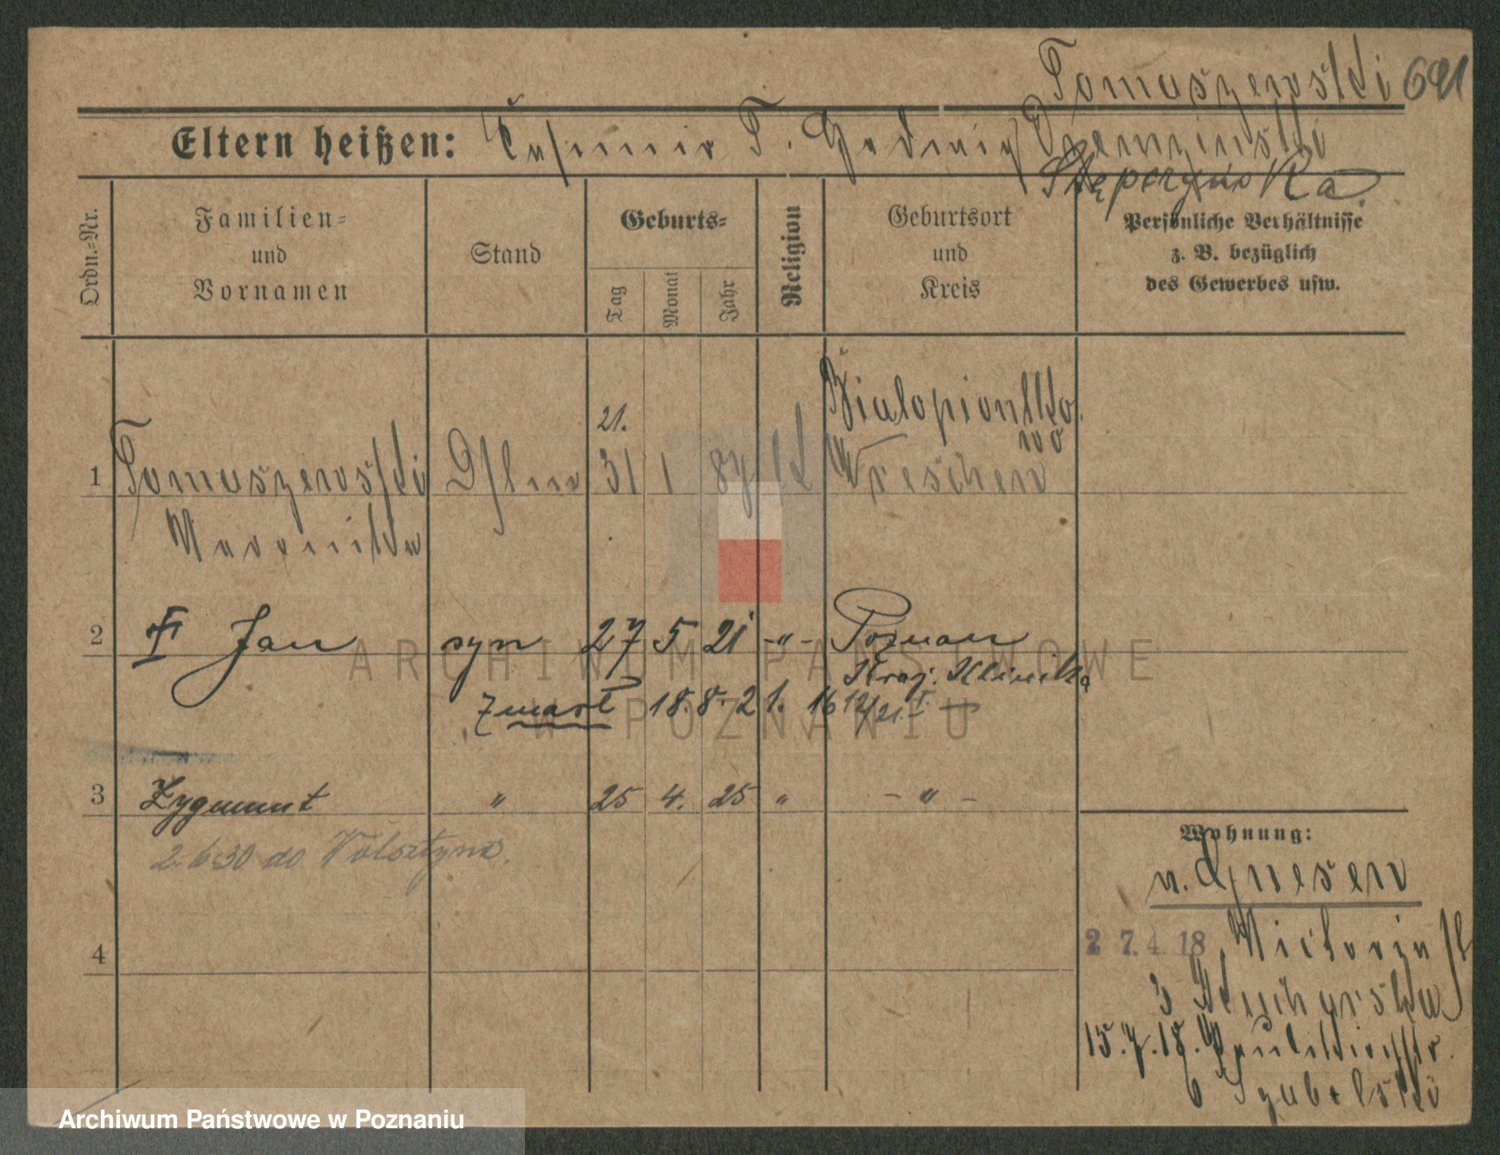 Tomaszewski 691
Eltern heißen: Casimir T. Hedwig Dzeminski
Stęperzyńska
Ordn.-Nr.
Familien-
und
Vornamen
Stand
Geburts-
Tag
Monat
Jahr
Religion
Geburtsort
und
Kreis
Persönliche Verhältnisse
z. B. bezüglich
des Gewerbes usw.
21.
Bialopiontko
wo
1 Tomaszewski 31 1 87 k Wreschen
Maronika
2 Jan syn 27 5 21 -"- Poznan
Kraj. Klinika
zmarł 18.8.21. 16 12/21
3 Zygmunt " 25 4. 25 " - " -
2.6.30 do Wolsztyna.
Wohnung:
v. Gnesen
4
27.4.18 Victoriastr
3 Kucharska
15.7.18. Paulikirchstr.
6 Szubelski
ARCHIWUM PAŃSTWOWE
W POZNANIU
Archiwum Państwowe w Poznaniu